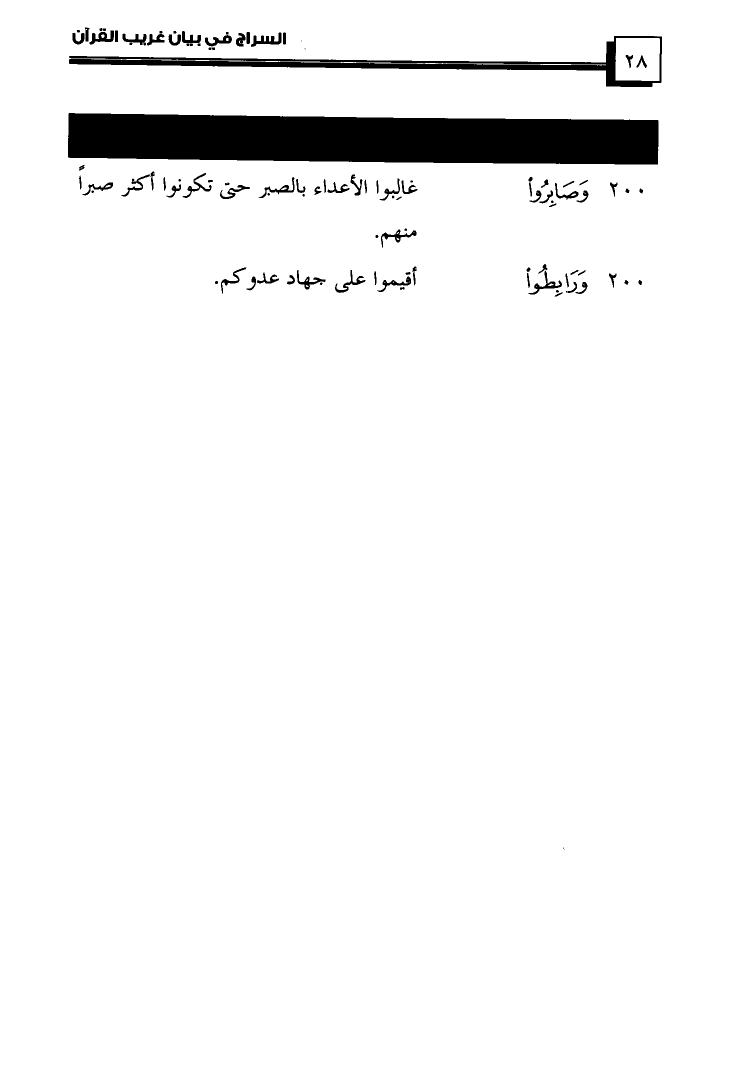 السراج في بيان غريب القرآن
٢٨
٢٠٠ وَصَابِرُواْ غالِبوا الأعداء بالصبر حتى تكونوا أكثر صبراً
منهم.
٢٠٠ وَرَابِطُواْ أقيموا على جهاد عدوكم.